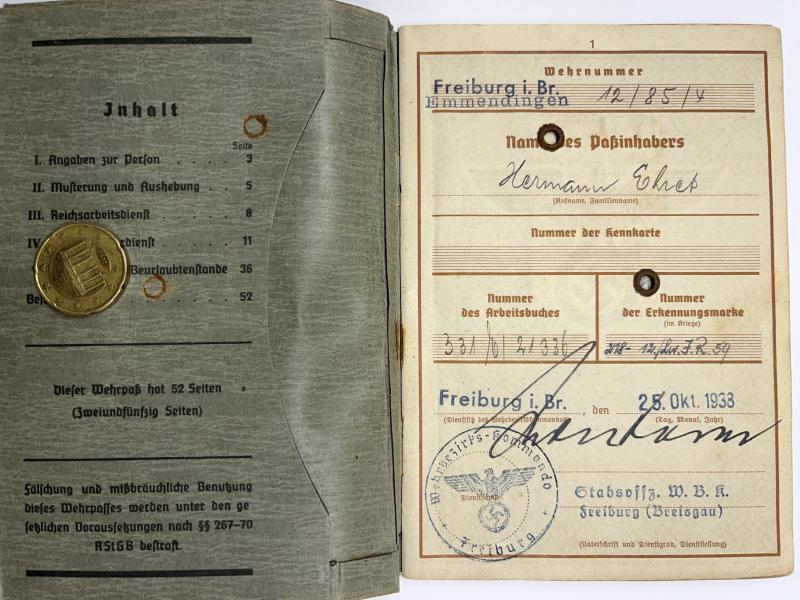 Inhalt
Seite
I. Angaben zur Person . . . . . 3
II. Musterung und Aushebung . . 5
III. Reichsarbeitsdienst . . . . . 8
IV rdienst . . . . . 11
Beurlaubtenstande 36
52
Dieser Wehrpaß hat 52 Seiten
(Zweiundfünfzig Seiten)
Fälschung und mißbräuchliche Benutzung
dieses Wehrpasses werden unter den ge
setzlichen Voraussetzungen nach §§ 267–70
RStGB bestraft.
1
Wehrnummer
Freiburg i. Br.
Emmendingen 12/85/4
Name des Paßinhabers
Hermann Ehret
(Rufname, Familienname)
Nummer der Kennkarte
Nummer
des Arbeitsbuches
331/6/21336
Nummer
der Erkennungsmarke
(im Kriege)
218 - 12./Lw. J.R. 59
Freiburg i. Br., den 25. Okt. 1938
(Dienstsitz des Wehrbezirkskommandos) (Tag, Monat, Jahr)
Wehrbezirks-Kommando
Freiburg
Stabsoffz. W. B. K.
Freiburg (Breisgau)
(Unterschrift und Dienstgrad, Dienststellung)